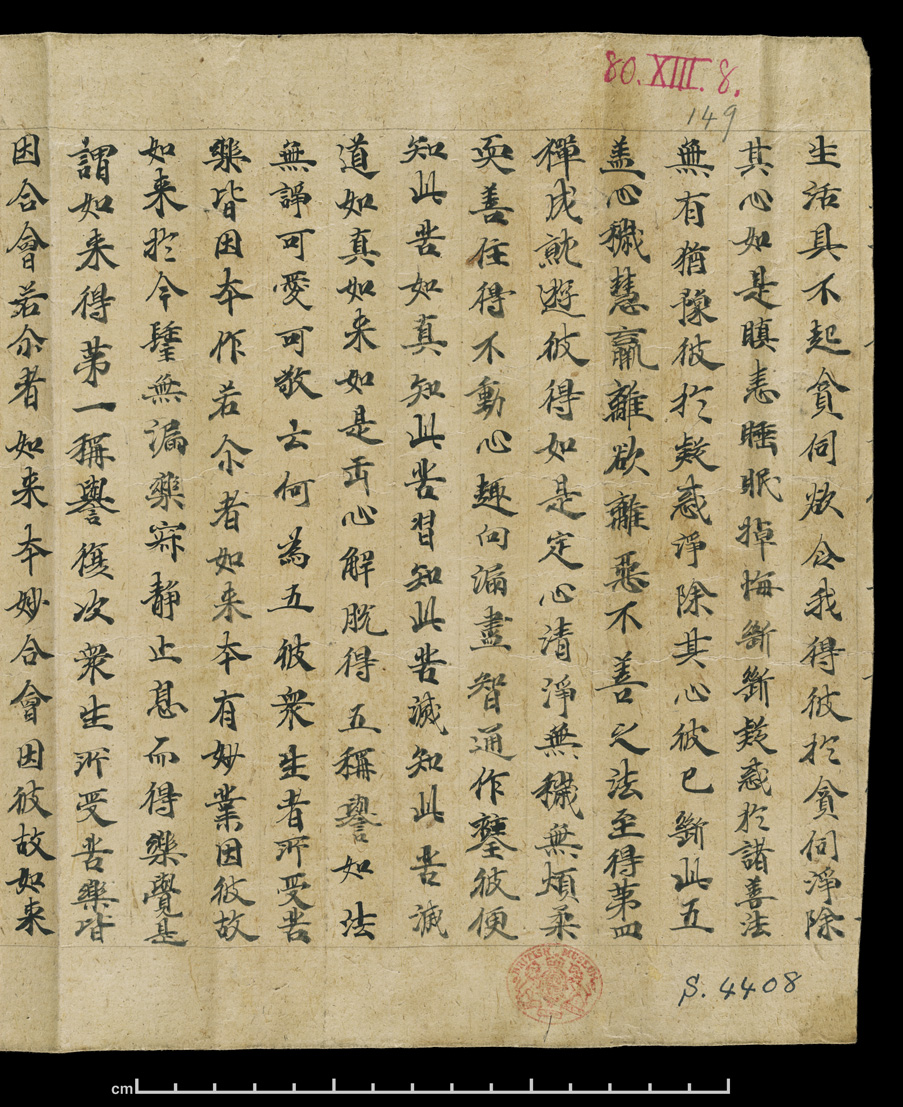 80.XIII.8.
149
生活具不起貪伺欲令我得彼於貪伺淨除
其心如是瞋恚睡眠掉悔斷斷疑惑於諸善法
無有猶豫彼於疑惑淨除其心彼已斷此五
盖心穢慧羸離欲離惡不善之法至得苐四
禪成就遊彼得如是定心清淨無穢無煩柔
耎善住得不動心趣向漏盡智通作證彼便
知此苦如真知此苦習知此苦滅知此苦滅
道如真如来如是正心解脱得五稱譽如法
無諍可愛可敬云何為五彼衆生者所受苦
樂皆因本作若尒者如来本有妙業因彼故
如来於今聖無漏樂寂静止息而得樂覺是
謂如来得苐一稱譽復次衆生所受苦樂皆
因合會若尒者如来本妙合會因彼故如来
BRITISH MUSEUM
S. 4408
cm